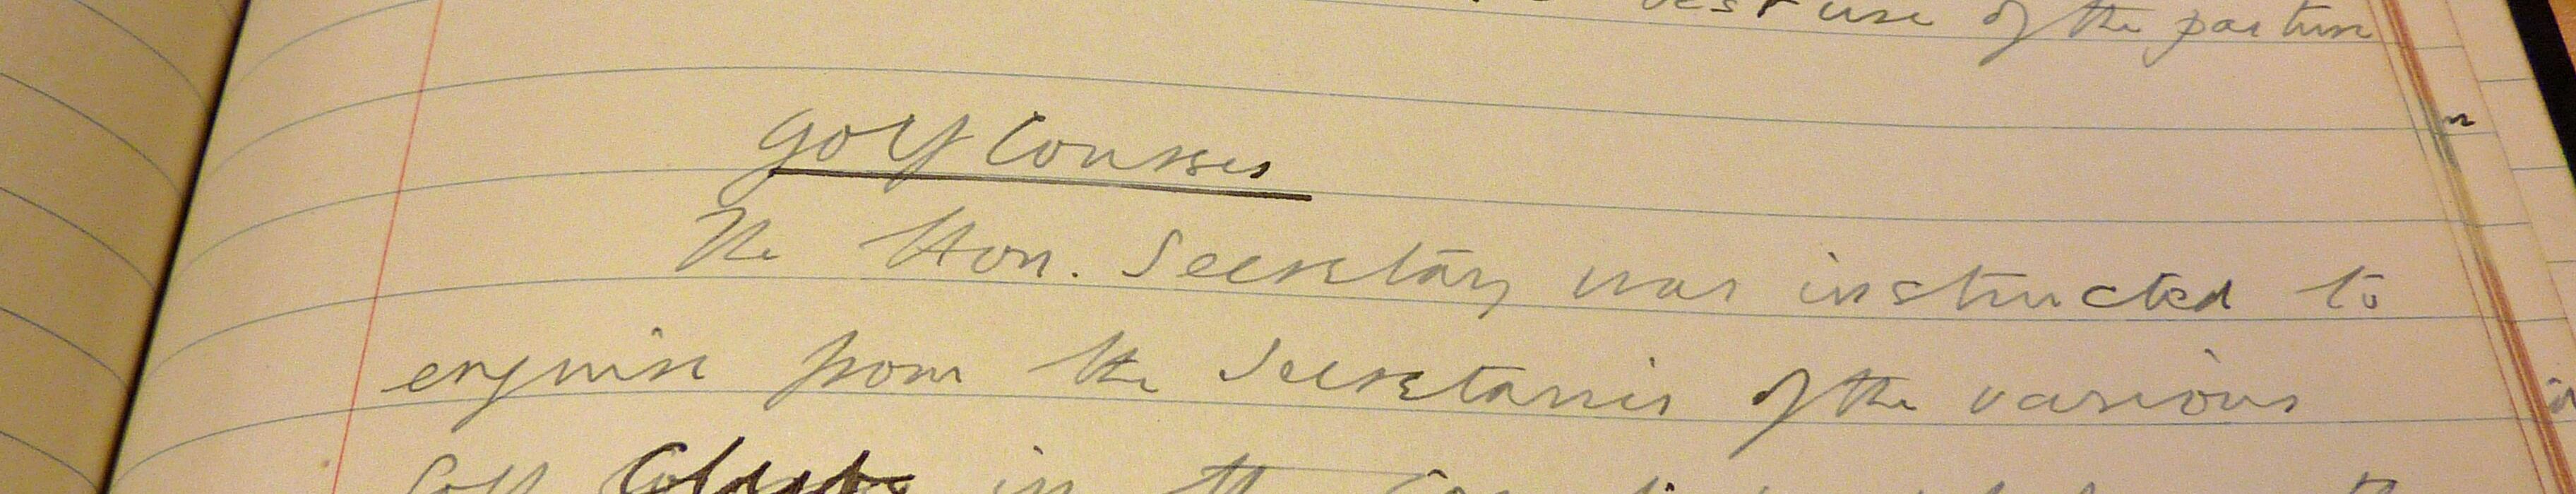 best use of the pasture
Golf Courses
The Hon. Secretary was instructed to
enquire from the Secretaries of the various
Golf Clubs in the